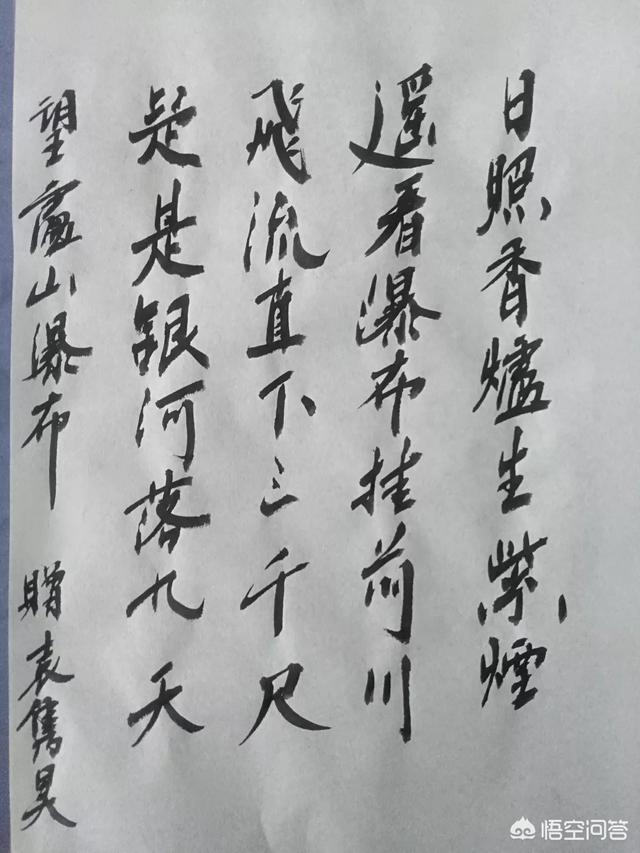 日照香爐生紫煙
遥看瀑布挂前川
飛流直下三千尺
疑是銀河落九天
望廬山瀑布 贈袁雋昊
悟空问答